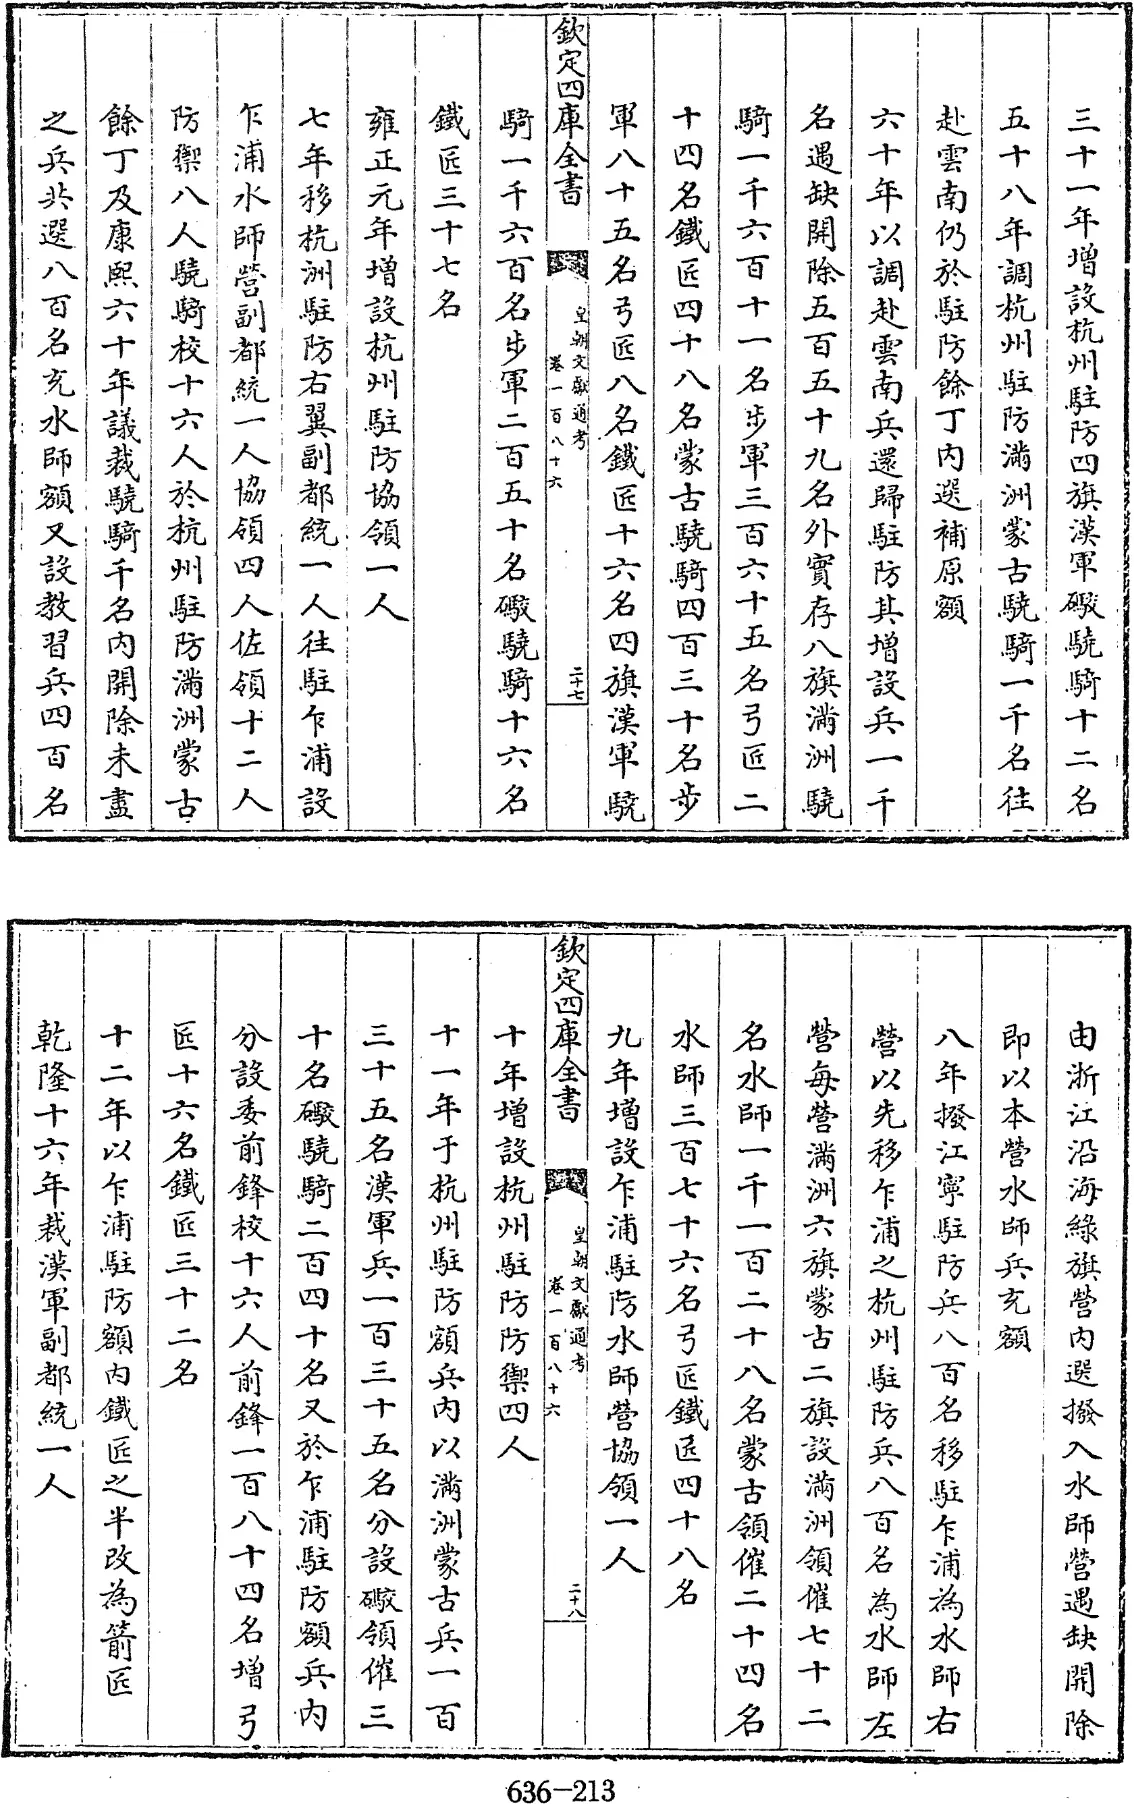 三十一年增設杭州駐防四旗漢軍礮驍騎十二名
五十八年調杭州駐防滿洲蒙古驍騎一千名往
赴雲南仍於駐防餘丁內選補原額
六十年以調赴雲南兵還歸駐防其增設兵一千
名遇缺開除五百五十九名外實存八旗滿洲驍
騎一千六百十一名步軍三百六十五名弓匠二
十四名鐵匠四十八名蒙古驍騎四百三十名步
軍八十五名弓匠八名鐵匠十六名四旗漢軍驍
欽定四庫全書
皇朝文獻通考
卷一百八十六
二十七
騎一千六百名步軍二百五十名礮驍騎十六名
鐵匠三十七名
雍正元年增設杭州駐防協領一人
七年移杭洲駐防右翼副都統一人往駐乍浦設
乍浦水師營副都統一人協領四人佐領十二人
防禦八人驍騎校十六人於杭州駐防滿洲蒙古
餘丁及康熙六十年議裁驍騎千名內開除未盡
之兵共選八百名充水師額又設教習兵四百名
由浙江沿海綠旗營內選撥入水師營遇缺開除
即以本營水師兵充額
八年撥江寧駐防兵八百名移駐乍浦為水師右
營以先移乍浦之杭州駐防兵八百名為水師左
營每營滿洲六旗蒙古二旗設滿洲領催七十二
名水師一千一百二十八名蒙古領催二十四名
水師三百七十六名弓匠鐵匠四十八名
九年增設乍浦駐防水師營協領一人
欽定四庫全書
皇朝文獻通考
卷一百八十六
二十八
十年增設杭州駐防防禦四人
十一年于杭州駐防額兵內以滿洲蒙古兵一百
三十五名漢軍兵一百三十五名分設礮領催三
十名礮驍騎二百四十名又於乍浦駐防額兵內
分設委前鋒校十六人前鋒一百八十四名增弓
匠十六名鐵匠三十二名
十二年以乍浦駐防額內鐵匠之半改為箭匠
乾隆十六年裁漢軍副都統一人
636-213